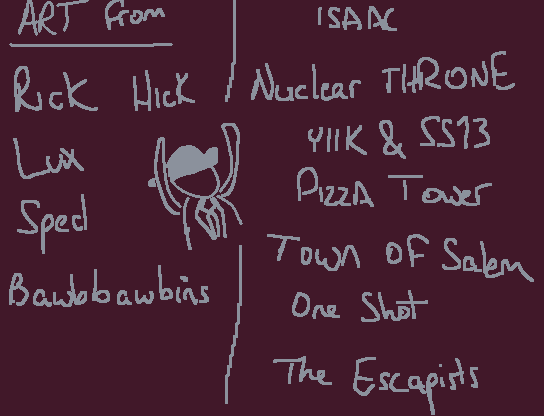 ART From
RICK HICK
Lux
Sped
Bawbbawbins
ISAAC
Nuclear THRONE
YIIK & SS13
PIZZA Tower
Town OF Salem
One Shot
The Escapists